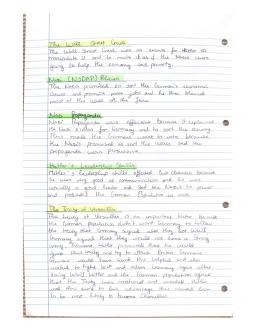 The Wall Street Crash
The Wall Street Crash was an excuse for Hitler to
manipulate it and to make it as if the Nazis were
going to help the economy and poverty.
Nazi (NSDAP) Policies
The Nazis promised to sort the German's economic
issues and promise more jobs and he then blamed
most of the issues on the Jews
Nazi Propaganda
Nazi Propaganda was effective because it explained
the Nazi's ideas for Germany and to sort the economy
This made the Germans want to vote because
the Nazis promised to sort the issues and the
propaganda was Persuasive.
Hitler's Leadership Skills
Hitler's leadership skills effected his chances because
he was very good at communication and he was
actually a good leader and led the Nazis to power
and persuaded the German Population to vote.
The Treaty of Versailles
The treaty of Versailles is an important factor because
the German population didn't want Germany to follow
the treaty that Germany signed after they lost WW1.
Germany signed that they would not have a strong
army. However, Hitler promised that he would
treaty and try to attack Britain. Germans
would have found this helpful and also
wanted to fight back and reform Germany again after
losing WW1. Hitler and the German population agreed
that the Treaty was unethical and needed. Hitler
used this word to his advantage. This caused him
to be most likely to become Chancellor.